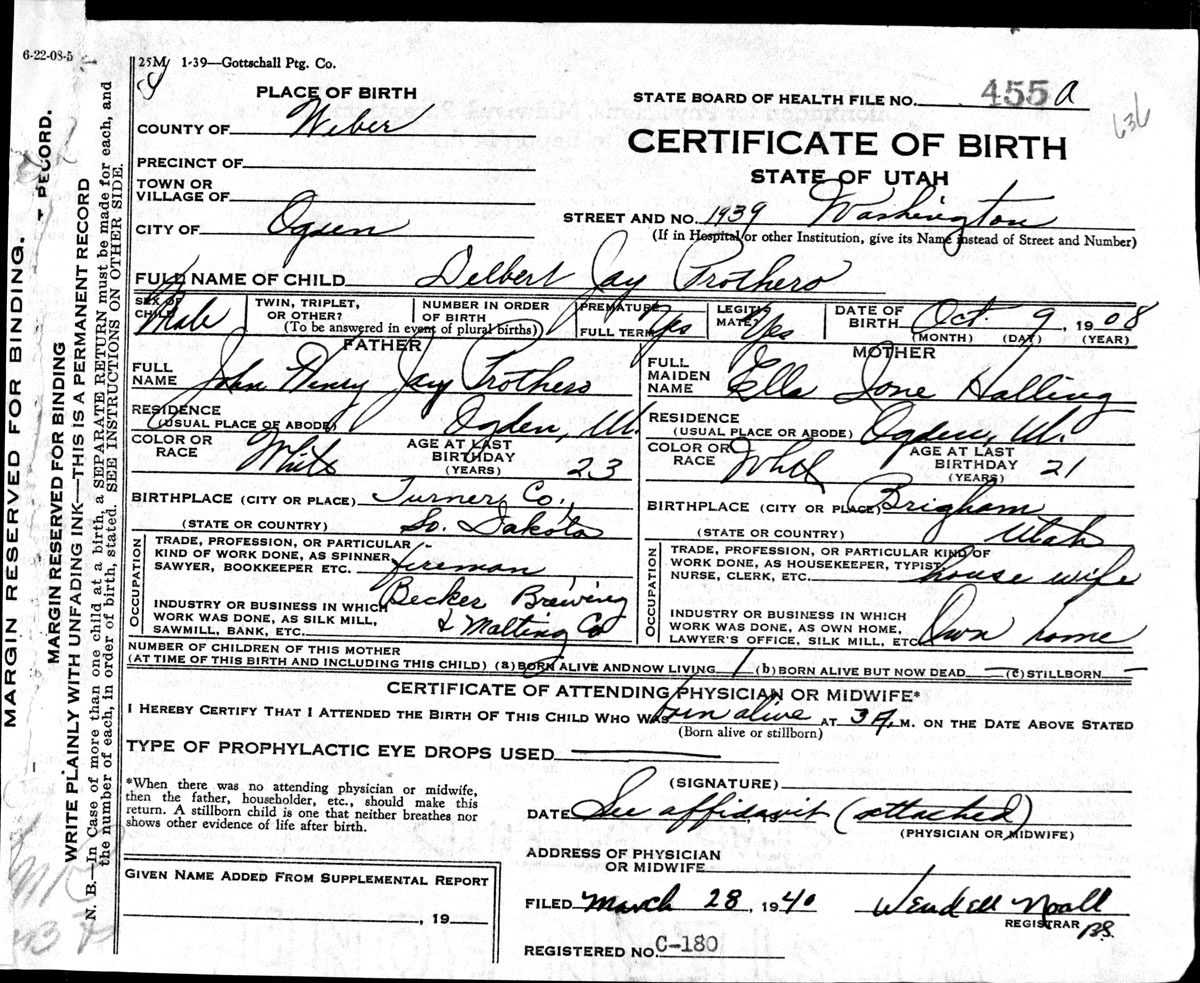 6-22-08-5
25M 1-39—Gottschall Ptg. Co.
PLACE OF BIRTH
COUNTY OF Weber
PRECINCT OF
TOWN OR
VILLAGE OF
CITY OF Ogden
STATE BOARD OF HEALTH FILE NO. 455 a
636
CERTIFICATE OF BIRTH
STATE OF UTAH
STREET AND NO. 1939 Washington
(If in Hospital or other Institution, give its Name instead of Street and Number)
FULL NAME OF CHILD Delbert Jay Prothero
SEX OF CHILD Male
TWIN, TRIPLET, OR OTHER?
NUMBER IN ORDER OF BIRTH
(To be answered in event of plural births)
PREMATURE
FULL TERM Yes
LEGITIMATE? Yes
DATE OF BIRTH Oct. 9, 1908
(MONTH) (DAY) (YEAR)
FATHER
FULL NAME John Henry Jay Prothero
RESIDENCE
(USUAL PLACE OF ABODE) Ogden, U.
COLOR OR RACE White
AGE AT LAST BIRTHDAY (YEARS) 23
BIRTHPLACE (CITY OR PLACE) Turner Co.,
(STATE OR COUNTRY) So. Dakota
OCCUPATION
TRADE, PROFESSION, OR PARTICULAR
KIND OF WORK DONE, AS SPINNER,
SAWYER, BOOKKEEPER ETC. fireman
INDUSTRY OR BUSINESS IN WHICH
WORK WAS DONE, AS SILK MILL,
SAWMILL, BANK, ETC. Becker Brewing
& Malting Co
MOTHER
FULL MAIDEN NAME Ella Ione Halling
RESIDENCE
(USUAL PLACE OR ABODE) Ogden, U.
COLOR OR RACE White
AGE AT LAST BIRTHDAY (YEARS) 21
BIRTHPLACE (CITY OR PLACE) Brigham
(STATE OR COUNTRY) Utah
OCCUPATION
TRADE, PROFESSION, OR PARTICULAR KIND OF
WORK DONE, AS HOUSEKEEPER, TYPIST,
NURSE, CLERK, ETC. house wife
INDUSTRY OR BUSINESS IN WHICH
WORK WAS DONE, AS OWN HOME,
LAWYER'S OFFICE, SILK MILL, ETC. Own home
NUMBER OF CHILDREN OF THIS MOTHER
(AT TIME OF THIS BIRTH AND INCLUDING THIS CHILD) (a) BORN ALIVE AND NOW LIVING 1 (b) BORN ALIVE BUT NOW DEAD — (c) STILLBORN —
CERTIFICATE OF ATTENDING PHYSICIAN OR MIDWIFE*
I HEREBY CERTIFY THAT I ATTENDED THE BIRTH OF THIS CHILD WHO WAS born alive AT 3 A. M. ON THE DATE ABOVE STATED
(Born alive or stillborn)
TYPE OF PROPHYLACTIC EYE DROPS USED
*When there was no attending physician or midwife,
then the father, householder, etc., should make this
return. A stillborn child is one that neither breathes nor
shows other evidence of life after birth.
(SIGNATURE)
DATE See affidavit (attached)
(PHYSICIAN OR MIDWIFE)
ADDRESS OF PHYSICIAN
OR MIDWIFE
GIVEN NAME ADDED FROM SUPPLEMENTAL REPORT
, 19
FILED March 28, 1940 Wendell Noall
REGISTRAR BS.
REGISTERED NO. C-180
MARGIN RESERVED FOR BINDING.
RECORD.
MARGIN RESERVED FOR BINDING
WRITE PLAINLY WITH UNFADING INK—THIS IS A PERMANENT RECORD
N. B.—In Case of more than one child at a birth, a SEPARATE RETURN must be made for each, and
the number of each, in order of birth, stated. SEE INSTRUCTIONS ON OTHER SIDE.